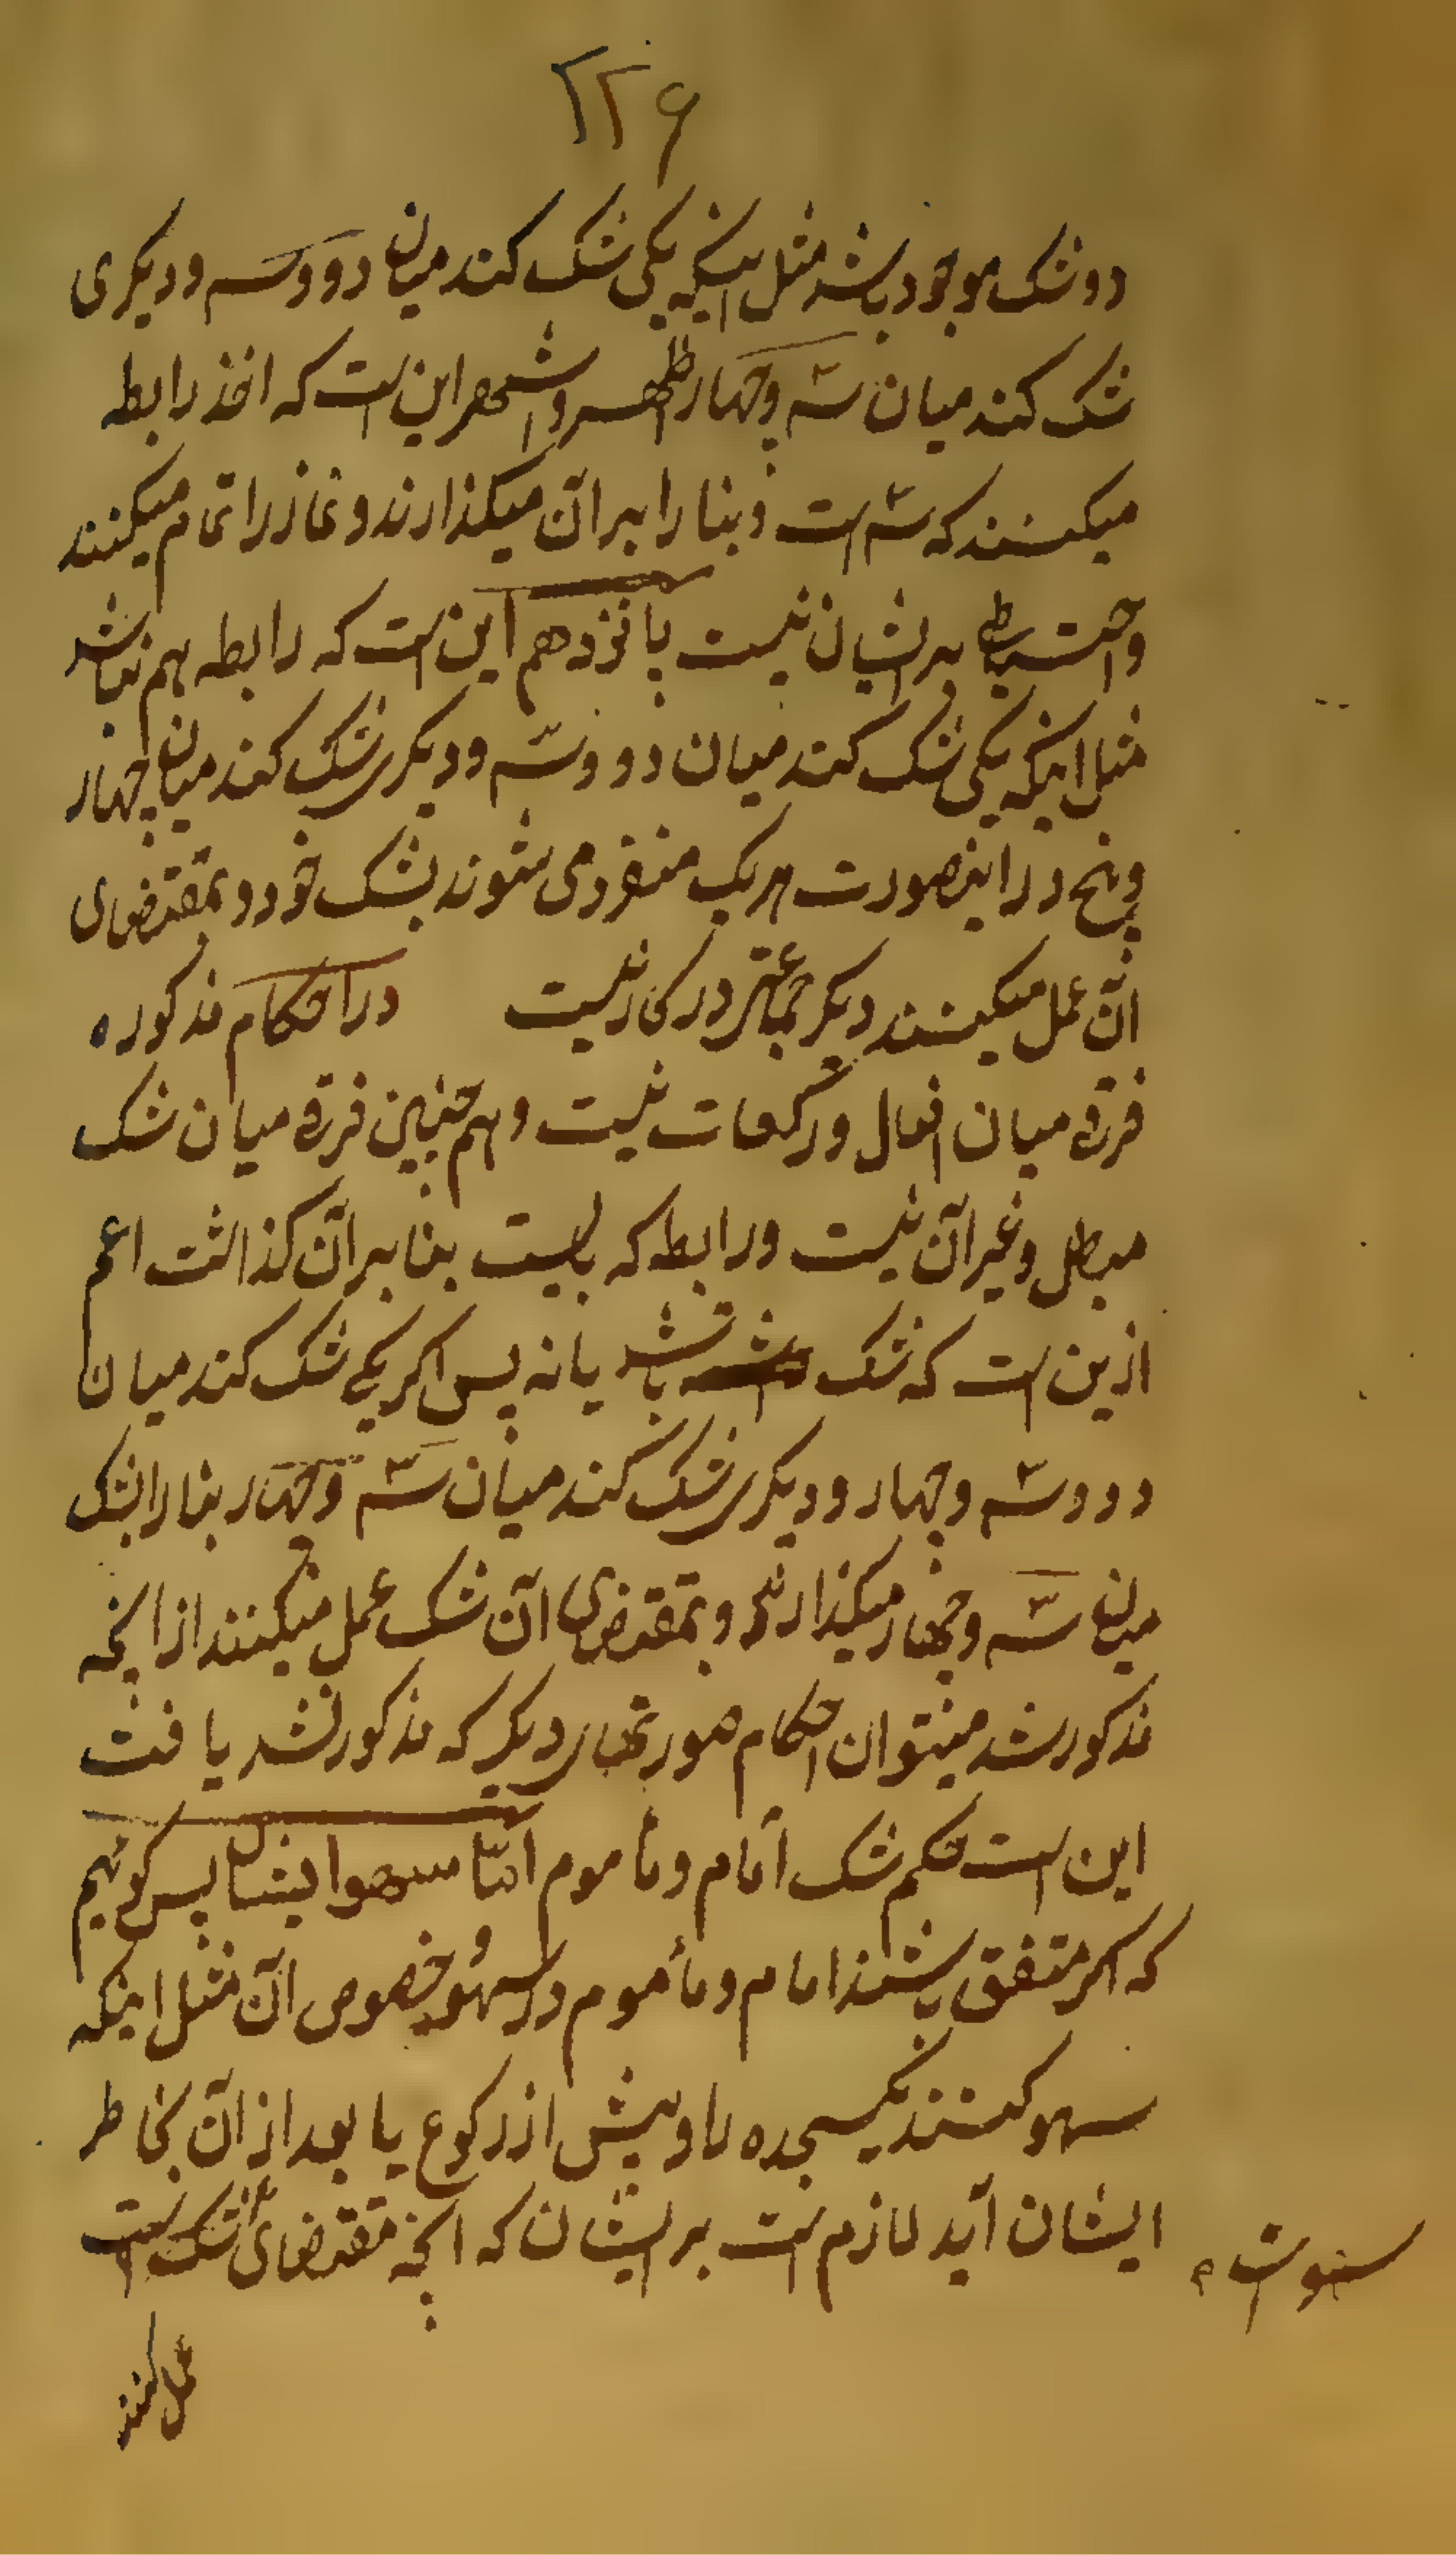 ۲۲۶
دو شک موجود باشد مثل اینکه یکی شک کند میان دو و سه و دیکری
شک کند میان سه و چهار اظهر و اشهر این است که اخذ رابطه
میکنند که سه است و بنا را بر آن میکذارند و نماز را تمام میکنند
و احتیاطی بر ایشان نیست پانزدهم این است که رابطه هم نباشد
مثل اینکه یکی شک کند میان دو و سه و دیکری شک کند میان چهار
و پنج در اینصورت هر یک منفرد می شوند بشک خود و بمقتضای
آن عمل میکنند دیکر جماعتی در کار نیست در احکام مذکوره
فرق میان افعال و رکعات نیست و هم چنین فرق میان شک
مبطل و غیر آن نیست و رابطه که بایست بنا بر آن کذاشت اعم
ازین است که شک باشد یا نه پس اکر یکی شک کند میان
دو و سه و چهار و دیکری شک کند میان سه و چهار بنا را بشک
میان سه و چهار میکذارند و بمقتضای آن شک عمل میکنند از آنچه
مذکور شد میتوان احکام صورتهای دیکر که مذکور نشد یافت
این است حکم شک امام و مأموم اما سهو ایشان پس کوئیم
که اکر متفق باشند امام و مأموم در سهو و خصوص آن مثل اینکه
سهو کنند یکسجده را و پیش از رکوع یا بعد از آن بخاطر
ایشان آید لازم است بر ایشان که آنچه مقتضای شک است
سهو است م
عمل کنند